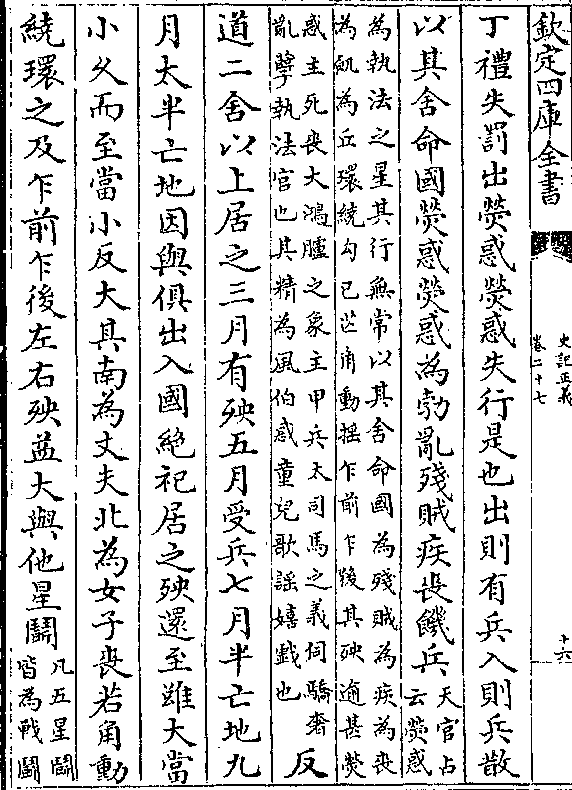 欽定四庫全書
史記正義
卷二十七
十六
丁禮失罰出熒惑熒惑失行是也出則有兵入則兵散
以其舍命國熒惑熒惑為勃亂殘賊疾喪饑兵
天官占
云熒惑
為執法之星其行無常以其舍命國為殘賊為疾為喪
為飢為兵環繞勾已芒角動搖乍前乍後其殃逾甚熒
惑主死喪大鴻臚之象主甲兵太司馬之義伺驕奢
亂孽執法官也其精為風伯惑童兒歌謡嬉戱也
反
道二舍以上居之三月有殃五月受兵七月半亡地九
月太半亡地因與俱出入國絶祀居之殃還至雖大當
小久而至當小反大其南為丈夫北為女子喪若角動
繞環之及乍前乍後左右殃益大與他星鬬
凡五星鬬
皆為戰鬬